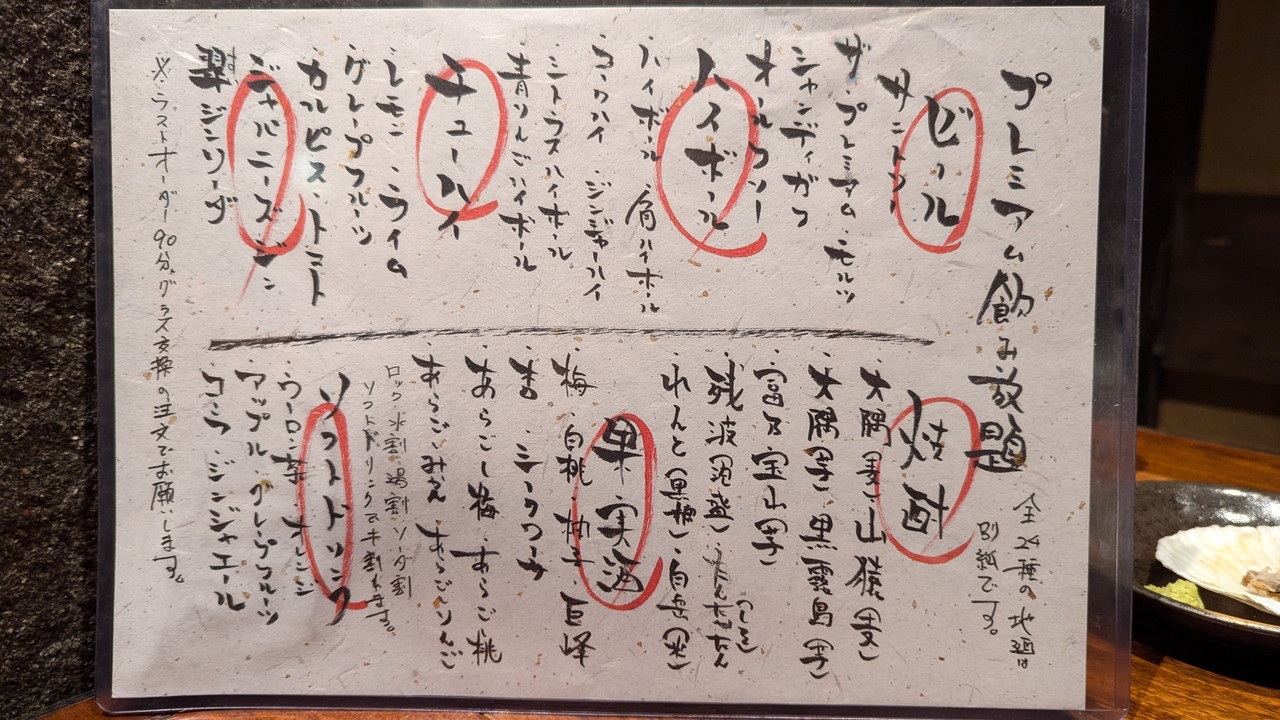 プレミアム飲み放題
全24種の地酒は
別紙です。
ビール
サントリー
ザ・プレミアム・モルツ
シャンディガフ
オールフリー
ハイボール
・ハイボール・角ハイボール
・コークハイ・ジンジャーハイ
・シトラスハイボール
・青りんごハイボール
チューハイ
・レモン・ライム
・グレープフルーツ
・カルピス・トマト
ジャパニーズジン
翠ジンソーダ
焼酎
・大隅(麦)・山猿(麦)
・大隅(芋)・黒霧島(芋)
・富乃宝山(芋)
・残波(泡盛)・たんたかたん(しそ)
・れんと(黒糖)・白岳(米)
果実酒
・梅・白桃・柚子・巨峰
・杏・シークワーサ
・あらごし梅・あらごし桃
・あらごしみかん・あらごしりんご
ロック・水割・湯割・ソーダ割
ソフトドリンクでも割れます。
ソフトドリンク
・ウーロン茶・オレンジ
・アップル・グレープフルーツ
・コーラ・ジンジャエール
※ラストオーダー90分。グラス交換の注文でお願いします。